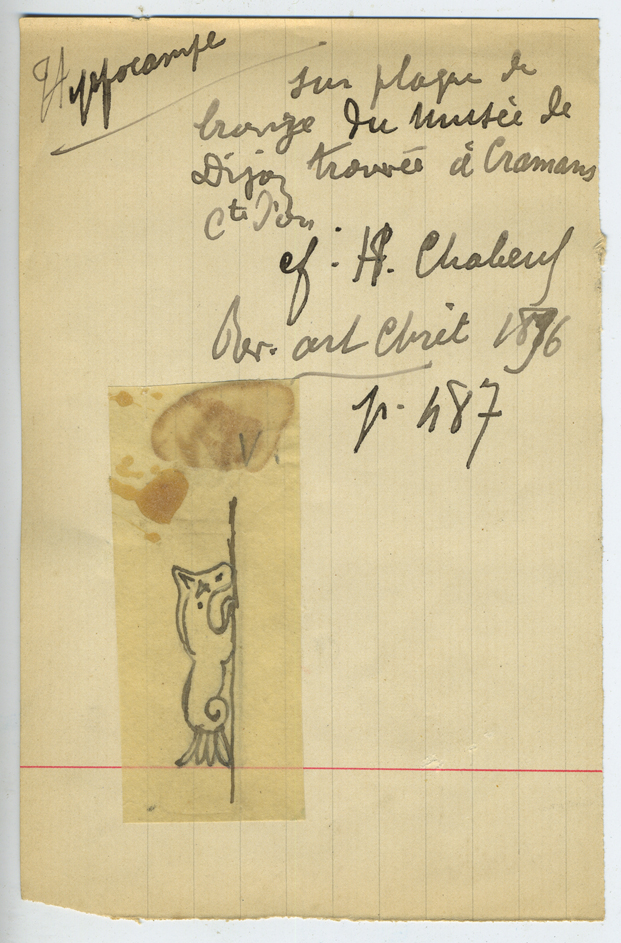 Hyppocampe
sur plaque de
bronze du Musée de
Dijon trouvée à Cramans
Cte d'or
cf. H. Chabeuf
Rev. art Chrét 1896
p. 487
V.